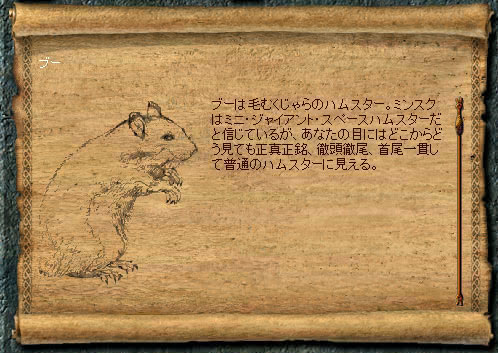 ブー
ブーは毛むくじゃらのハムスター。ミンスク
はミニ・ジャイアント・スペースハムスターだ
と信じているが、あなたの目にはどこからど
う見ても正真正銘、徹頭徹尾、首尾一貫し
て普通のハムスターに見える。